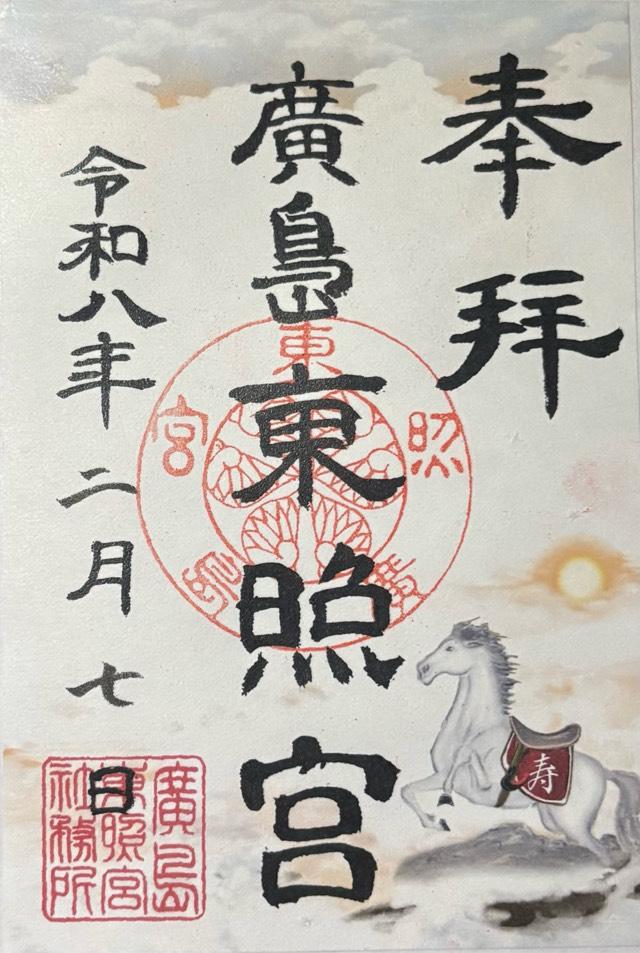 奉拝
廣島東照宮
令和八年二月七日
東照宮
廣島東照宮社務所
寿